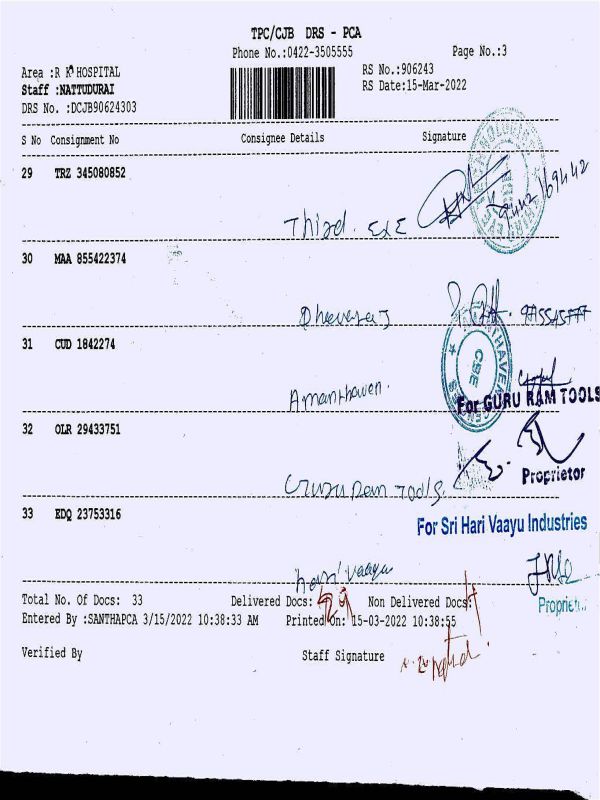 TPC/CJB DRS - PCA
Phone No.:0422-3505555
Page No.:3
Area :R K HOSPITAL
RS No.:906243
Staff :NATTUDURAI
RS Date:15-Mar-2022
DRS No. :DCJB90624303
S No Consignment No Consignee Details Signature
29 TRZ 345080852
Third EYE
30 MAA 855422374
31 CUD 1842274
CBE
For GURU RAM TOOLS
32 OLR 29433751
Proprietor
Guru Ram Tools
33 EDQ 23753316
For Sri Hari Vaayu Industries
hari vaayu
Total No. Of Docs: 33 Delivered Docs: 29 Non Delivered Docs: 4
Entered By :SANTHAPCA 3/15/2022 10:38:33 AM Printed On: 15-03-2022 10:38:55
Verified By Staff Signature